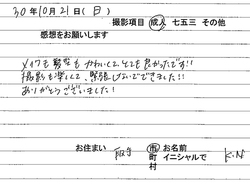 30年10月21日(日)
撮影項目 成人 七五三 その他
感想をお願いします
メイクも髪型もかわいくしてとても良かったです!!
撮影も楽しくて、緊張しないでできました!!
ありがとうございました!
お住まい 市 お名前
町 イニシャルで K.N
村